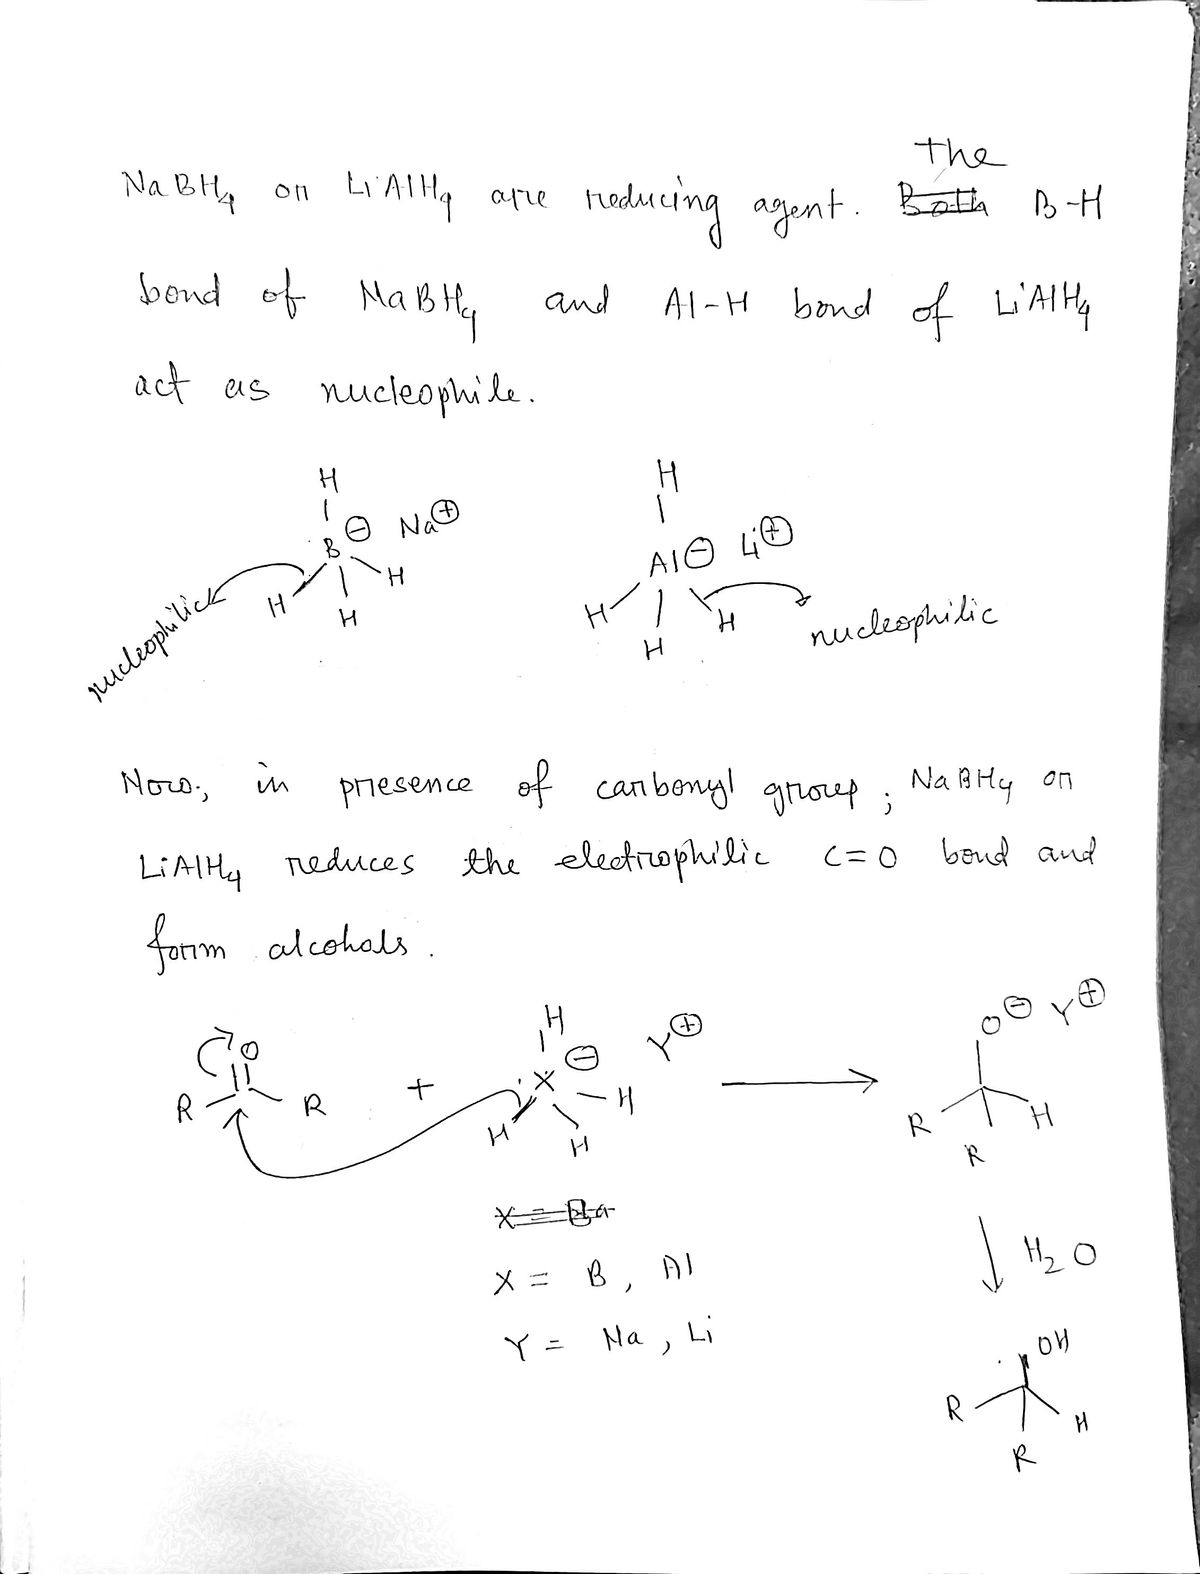 The
NaBH4 or LiAlH4 are reducing agent. ~~Both~~ B-H
bond of NaBH4 and Al-H bond of LiAlH4
act as nucleophile.
H H
B ⊖ Na ⊕ Al ⊖ Li ⊕
H H H H H H
nucleophilic nucleophilic
Now, in presence of carbonyl group; NaBH4 or
LiAlH4 reduces the electrophilic C=O bond and
form alcohols.
O H O ⊖ Y ⊕
R R + X ⊖ Y ⊕ → R R H
H H H
X = B, Al
Y = Na, Li
↓ H2O
OH
R H
R